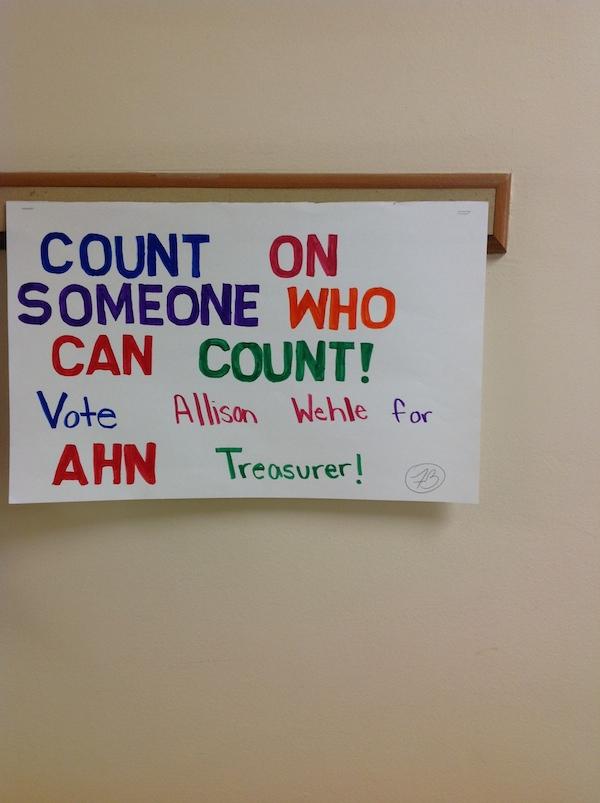 COUNT ON
SOMEONE WHO
CAN COUNT!
Vote Allison Wehle for
AHN Treasurer!